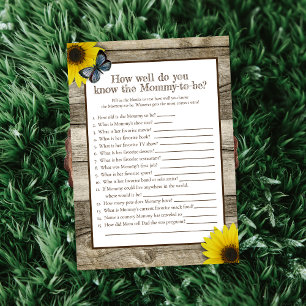 How well do you
know the Mommy-to-be?
Fill in the blanks to see how well you know
the Mommy-to-be. Whoever gets the most correct wins!
1. How old is the Mommy to be?
2. What is Mommy's shoe size?
3. What is her favorite movie?
4. What is her favorite book?
5. What is her favorite TV show?
6. What is her favorite dessert?
7. What is her favorite restaurant?
8. What was Mommy's first job?
9. What is her favorite sport?
10. What is her favorite band or solo artist?
11. If Mommy could live anywhere in the world,
where would it be?
12. How many pets does Mommy have?
13. What is Mommy's current favorite snack food?
14. Name a country Mommy has traveled to
15. How did Mom tell Dad she was pregnant?